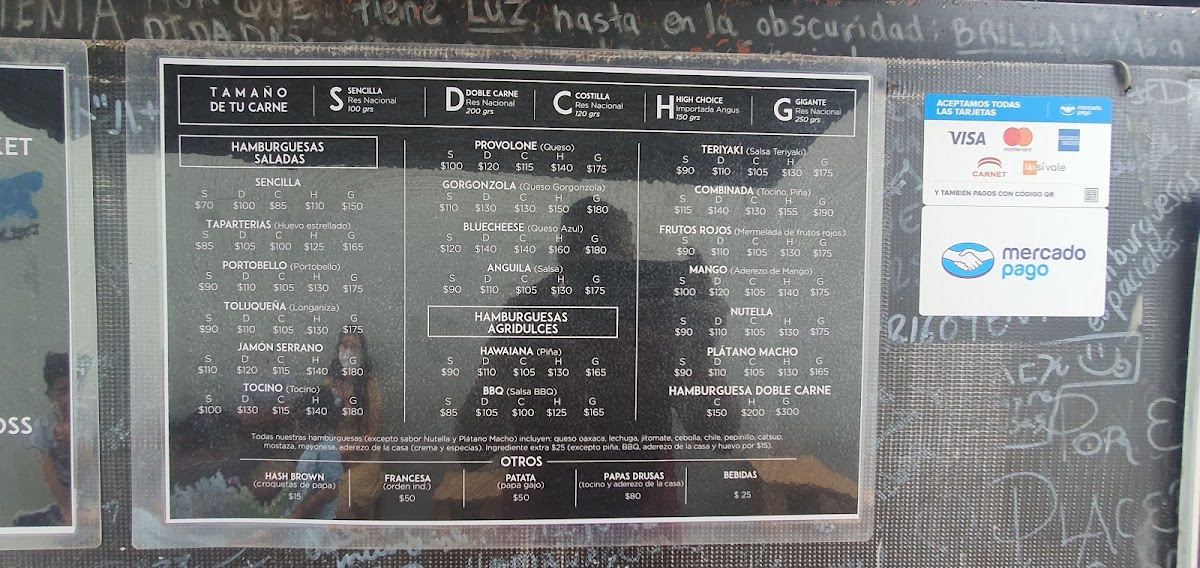 tiene LUZ, hasta en la obscuridad, BRILLA!!
KET
OSS
TAMAÑO
DE TU CARNE
S SENCILLA
Res Nacional
100 grs
D DOBLE CARNE
Res Nacional
200 grs
C COSTILLA
Res Nacional
120 grs
H HIGH CHOICE
Importada Angus
150 grs
G GIGANTE
Res Nacional
250 grs
HAMBURGUESAS
SALADAS
SENCILLA
S D C H G
$70 $100 $85 $110 $150
TAPARTERIAS (Huevo estrellado)
S D C H G
$85 $105 $100 $125 $165
PORTOBELLO (Portobello)
S D C H G
$90 $110 $105 $130 $175
TOLUQUEÑA (Longaniza)
S D C H G
$90 $110 $105 $130 $175
JAMÓN SERRANO
S D C H G
$110 $120 $115 $140 $180
TOCINO (Tocino)
S D C H G
$100 $130 $115 $140 $180
PROVOLONE (Queso)
S D C H G
$100 $120 $115 $140 $175
GORGONZOLA (Queso Gorgonzola)
S D C H G
$110 $130 $130 $150 $180
BLUECHEESE (Queso Azul)
S D C H G
$120 $140 $140 $160 $180
ANGUILA (Salsa)
S D C H G
$90 $110 $105 $130 $175
HAMBURGUESAS
AGRIDULCES
HAWAIANA (Piña)
S D C H G
$90 $110 $105 $130 $165
BBQ (Salsa BBQ)
S D C H G
$85 $105 $100 $125 $165
TERIYAKI (Salsa Teriyaki)
S D C H G
$90 $110 $105 $130 $175
COMBINADA (Tocino, Piña)
S D C H G
$115 $140 $130 $155 $190
FRUTOS ROJOS (Mermelada de frutos rojos)
S D C H G
$90 $110 $105 $130 $175
MANGO (Aderezo de Mango)
S D C H G
$100 $120 $105 $140 $175
NUTELLA
S D C H G
$90 $110 $105 $130 $175
PLÁTANO MACHO
S D C H G
$90 $110 $105 $130 $165
HAMBURGUESA DOBLE CARNE
C H G
$150 $200 $300
Todas nuestras hamburguesas (excepto sabor Nutella y Plátano Macho) incluyen: queso oaxaca, lechuga, jitomate, cebolla, chile, pepinillo, catsup,
mostaza, mayonesa, aderezo de la casa (crema y especias). Ingrediente extra $25 (excepto piña, BBQ, aderezo de la casa y huevo por $15).
OTROS
HASH BROWN
(croquetas de papa)
$15
FRANCESA
(orden ind.)
$50
PATATA
(papa gajo)
$50
PAPAS DRUSAS
(tocino y aderezo de la casa)
$80
BEBIDAS
$ 25
ACEPTAMOS TODAS
LAS TARJETAS
mercado
pago
VISA
mastercard
AMERICAN EXPRESS
CARNET
Up sí vale
Y TAMBIÉN PAGOS CON CÓDIGO QR
mercado
pago
hamburguesas
espaciales
POR E
PLACE